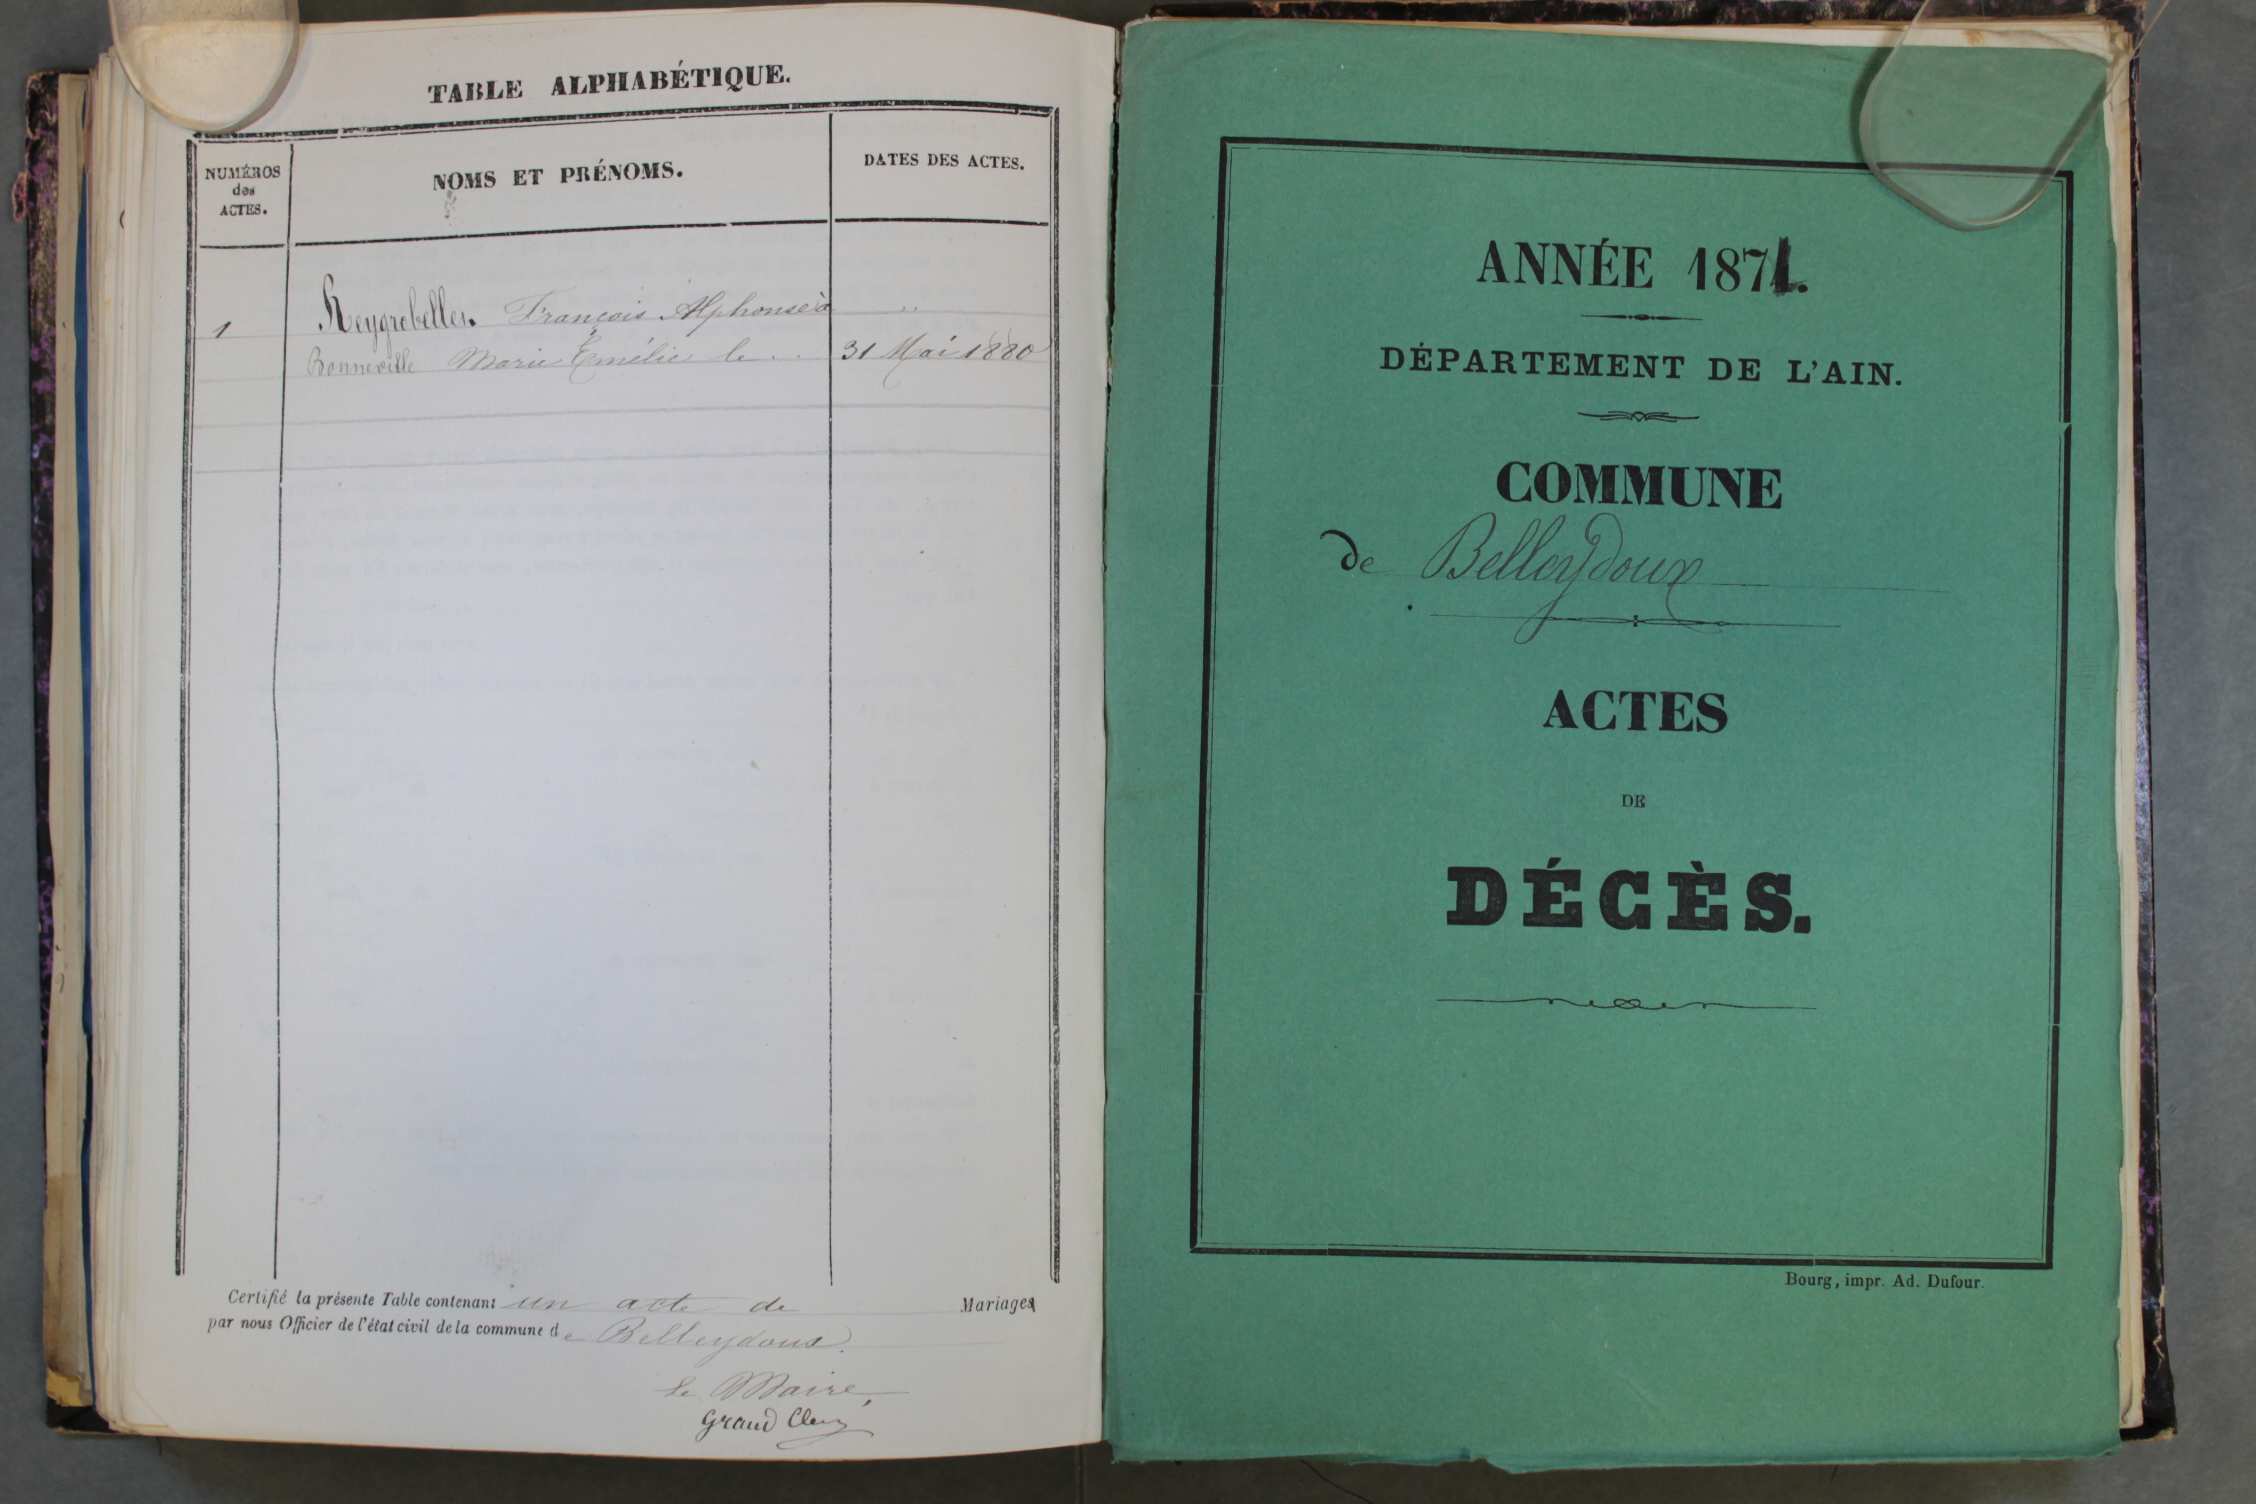 TABLE ALPHABÉTIQUE.
NUMÉROS
des
ACTES.
NOMS ET PRÉNOMS.
DATES DES ACTES.
1
François Alphonse à "
Bonneville Marie Émélie le .. 31 Mai 1880
Certifié la présente Table contenant un acte de Mariages
par nous Officier de l'état civil de la commune de Belleydoux.
Le Maire,
Grand Clem
ANNÉE 1871.
DÉPARTEMENT DE L'AIN.
COMMUNE
de Belleydoux
ACTES
DE
DÉCÈS.
Bourg, impr. Ad. Dufour.